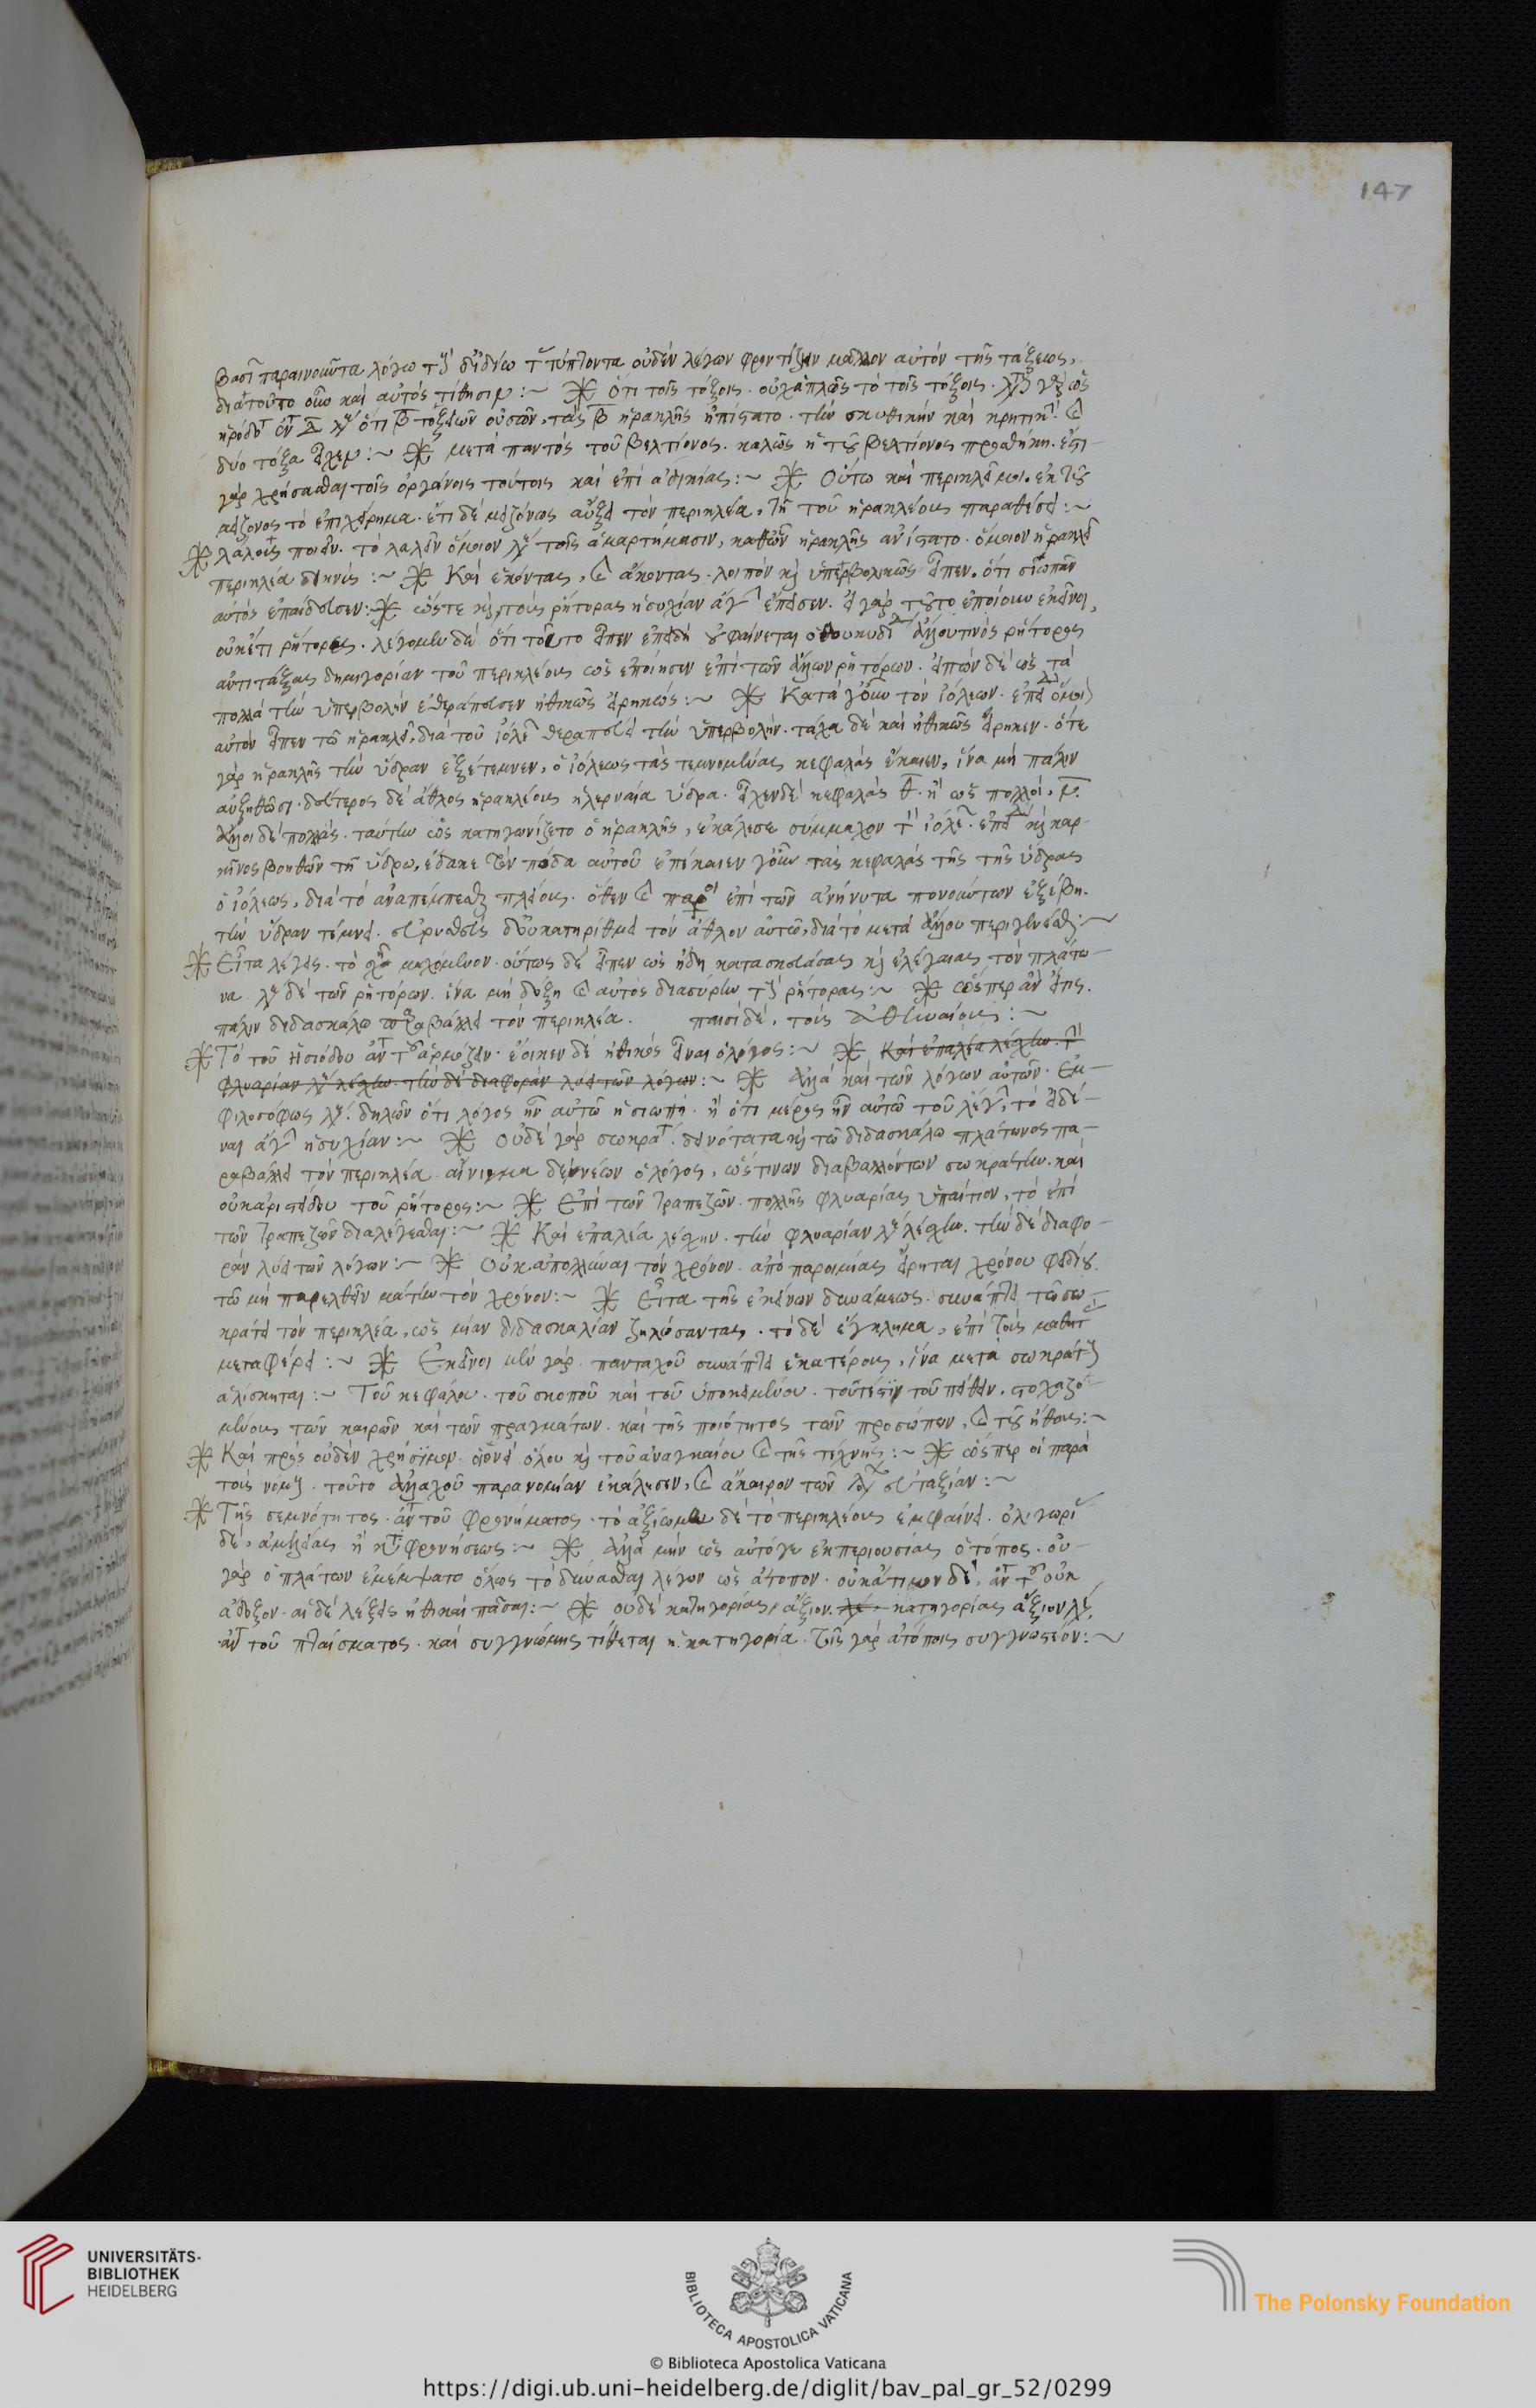 147
παραινοῦντα λόγω οὐδὲν λέγων φροντίζειν μᾶλλον αὐτὸν τῆς τάξεως,
διατοῦτο καὶ αὐτὸς τίθησιν :~ ※ ὅτι τοῖς τόξοις . οὐχ ἁπλῶς τὸ τοῖς τόξοις . ὡς
ὅτι β τοξειῶν οὐσῶν , τὰς β ἡρακλῆς ἠπίστατο . τὴν σκυθικὴν καὶ κρητικ
δύο τόξα εἶχεν :~ ※ μετὰ παντὸς τοῦ βελτίονος . καλῶς ἡ τοῦ βελτίονος προσθήκη . ἔστι
γὰρ χρήσασθαι τοῖς ὀργάνοις τούτοις καὶ ἐπὶ ἀδικίας :~ ※ Οὕτω καὶ περικλεῖ μοι . ἐκ τοῦ
μείζονος τὸ ἐπιχείρημα . ἔτι δὲ μειζόνως αὔξει τὸν περικλέα , τῆ τοῦ ἡρακλέους παραθέσει :~
※ λάλους ποιεῖν . τὸ λαλεῖν ὅμοιον τοῖς ἁμαρτήμασιν , καθῶν ἡρακλῆς ἀνίστατο . ὅμοιον ἡρακλεῖ
περικλέα δεικνὺς :~ ※ Καὶ ἑκόντας , καὶ ἄκοντας . λοιπὸν καὶ ὑπερβολικῶς εἶπεν . ὅτι σιωπᾶν
αὐτὸς ἐπαίδευσεν :~ ※ ὥστε καὶ τοὺς ῥήτορας ἡσυχίαν ἄγ ἔπεισεν . εἰ γὰρ τοῦτο ἐποίουν ἐκεῖνοι ,
οὐκέτι ῥήτορες . λέγομεν δὲ ὅτι τοῦτο εἶπεν ἐπειδὴ οὐ φαίνεται ὁ θουκυδί ἄλλου τινὸς ῥήτορος
ἀντιτάξας δημηγορίαν τοῦ περικλέους ὡς ἐποίησεν ἐπὶ τῶν ἄλλων ῥητόρων . εἰπὼν δὲ ὡς τὰ
πολλὰ τὴν ὑπερβολὴν ἐθεράπευσεν ἠθικῶς εἰρηκώς :~ ※ Κατὰ γοῦν τὸν ἰόλεων . ἐπεὶ
αὐτὸν εἶπεν τῶ ἡρακλεῖ , διὰ τοῦ ἰόλε θεραπεύει τὴν ὑπερβολήν . τάχα δὲ καὶ ἠθικῶς εἴρηκεν . ὅτε
γὰρ ἡρακλῆς τὴν ὕδραν ἐξέτεμνεν , ὁ ἰόλεως τὰς τεμνομένας κεφαλὰς ἔκαιεν , ἵνα μὴ πάλιν
αὐξηθῶσι . δεύτερος δὲ ἆθλος ἡρακλέους ἡ λερναία ὕδρα . εἶχεν δὲ κεφαλὰς θ . ἢ ὡς πολλοὶ , ν .
ἄλλοι δὲ πολλάς . ταύτην ὡς κατηγωνίζετο ὁ ἡρακλῆς , ἐκάλεσε σύμμαχον ἰόλε . ἐπεὶ καὶ καρ-
κῖνος βοηθῶν τῆ ὕδρω , ἔδακε τὸν πόδα αὐτοῦ ἐπέκαιεν γοῦν τὰς κεφαλὰς τῆς τῆς ὕδρας
ὁ ἰόλεως , διὰ τὸ ἀναπέμπεσθαι πλείους . ὅθεν καὶ ἐπὶ τῶν ἀνήνυτα πονούντων ἐξέβη .
τὴν ὕδραν τέμνει . εὐρυσθεὺς δὲ οὐ κατηρίθμει τὸν ἆθλον αὐτῶ , διὰ τὸ μετὰ ἄλλου περιγενέσθαι :~
※ Εἶτα λέγεις . τὸ μαχόμενον . οὕτως δὲ εἶπεν ὡς ἤδη κατασκευάσας καὶ ἐλέγξας τὸν πλάτω-
να δὲ τῶν ῥητόρων . ἵνα μὴ δόξη καὶ αὐτὸς διασύρειν ῥήτορας :~ ※ ὥσπερ ἂν εἴποις .
πάλιν διδασκάλω παραβάλλει τὸν περικλέα . παισὶ δὲ , τοὺς ἀθηναίους :~
※ Τὸ τοῦ Ἡσιόδου ἁρμόζειν . ἔοικεν δὲ ἠθικὸς εἶναι ὁ λόγος :~ ※ Καὶ ἐπαλέα λέσχην .
φλυαρίαν λέσχην . τὴν δὲ διαφορὰν λύει τῶν λόγων :~ ※ Ἀλλὰ καὶ τῶν λόγων αὐτῶν . Ἐμ-
φιλοσόφως . δηλῶν ὅτι λόγος ἦν αὐτῶ ἡ σιωπή . ἢ ὅτι μέρος ἦν αὐτῶ τοῦ λέγ , τὸ εἰδέ-
ναι ἄγ ἡσυχίαν :~ ※ Οὐδὲ γὰρ σωκράτ . δεινότατα καὶ τῶ διδασκάλω πλάτωνος πα-
ραβάλλει τὸν περικλέα . αἴνιγμα δεικνύων ὁ λόγος , ὥς τινων διαβαλλόντων σωκράτην . καὶ
οὐκ ἀριστείδου τοῦ ῥήτορος :~ ※ Ἐπὶ τῶν τραπεζῶν . πολλῆς φλυαρίας ὑπαίτιον , τὸ ἐπὶ
τῶν τραπεζῶν διαλέγεσθαι :~ ※ Καὶ ἐπαλέα λέσχην . τὴν φλυαρίαν λέσχην . τὴν δὲ διαφο-
ρὰν λύει τῶν λόγων :~ ※ Οὐκ ἀπολλύναι τὸν χρόνον . ἀπὸ παροιμίας εἴρηται χρόνου φείδου .
τῶ μὴ παρελθεῖν μάτην τὸν χρόνον :~ ※ Εἶτα τῆς ἐκείνων δυνάμεως . συνάπτει τῶ σω-
κράτει τὸν περικλέα , ὡς μίαν διδασκαλίαν ζηλώσαντας . τὸ δὲ ἔγκλημα , ἐπὶ τοὺς μαθητ
μεταφέρει :~ ※ Ἐκεῖνοι μὲν γάρ . πανταχοῦ συνάπτει ἑκατέρους , ἵνα μετὰ σωκράτ
ἁλίσκηται :~ Τοῦ κεφάλου . τοῦ σκοποῦ καὶ τοῦ ὑποκειμένου . τουτέστιν τοῦ πείθειν , στοχαζο-
μένους τῶν καιρῶν καὶ τῶν πραγμάτων . καὶ τῆς ποιότητος τῶν προσώπων , καὶ τοῦ ἤθους :~
※ Καὶ πρὸς οὐδὲν χρήσιμον . ὅλου καὶ τοῦ ἀναγκαίου καὶ τῆς τέχνης :~ ※ ὥσπερ οἱ παρὰ
τοὺς νόμ . τοῦτο ἀλλαχοῦ παρανομίαν ἐκάλεσεν , καὶ ἄκαιρον τῶν εὐταξίαν :~
※ Τῆς σεμνότητος . τοῦ φρονήματος . τὸ ἀξίωμα δὲ τὸ περικλέους ἐμφαίνει . ὀλιγωρί
δὲ , ἀμελείας ἢ φρονήσεως :~ ※ Ἀλλὰ μὴν ὡς αὐτόγε ἐκ περιουσίας ὁ τόπος . οὐ-
γὰρ ὁ πλάτων ἐμέμψατο ὅλως τὸ δύνασθαι λέγων ὡς ἄτοπον . οὐκ ἄτιμον δὲ , οὐκ
ἄδοξον . αἱ δὲ λέξεις ἠθικαὶ πᾶσαι :~ ※ οὐδὲ κατηγορίας ἄξιον . κατηγορίας ἄξιον
τοῦ πταίσματος . καὶ συγγνώμης τίθεται ἡ κατηγορία . τοῖς γὰρ ἀτόποις συγγνωστέον :~
UNIVERSITÄTS-
BIBLIOTHEK
HEIDELBERG
BIBLIOTECA APOSTOLICA VATICANA
The Polonsky Foundation
© Biblioteca Apostolica Vaticana
https://digi.ub.uni-heidelberg.de/diglit/bav_pal_gr_52/0299